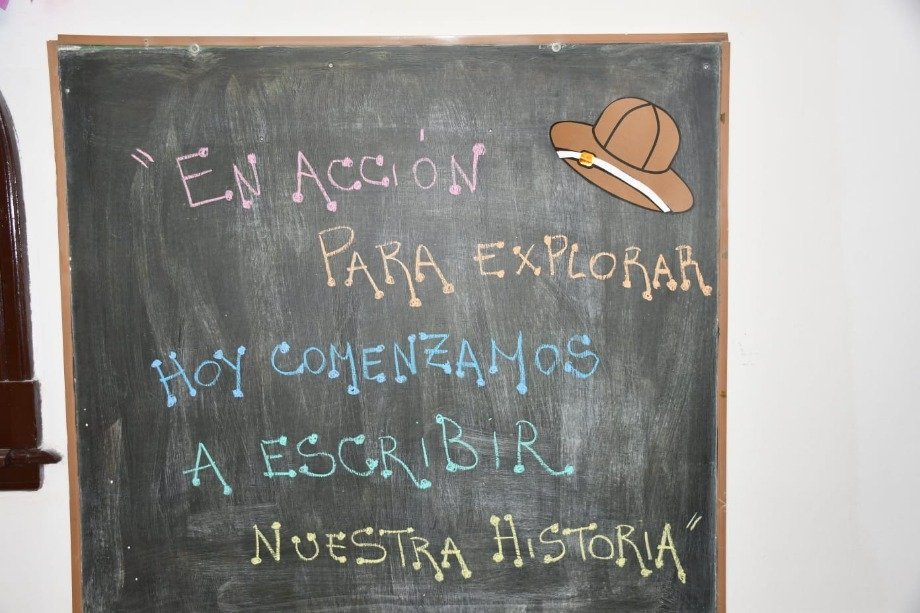 "En Acción
Para explorar
Hoy comenzamos
a escribir
Nuestra Historia"